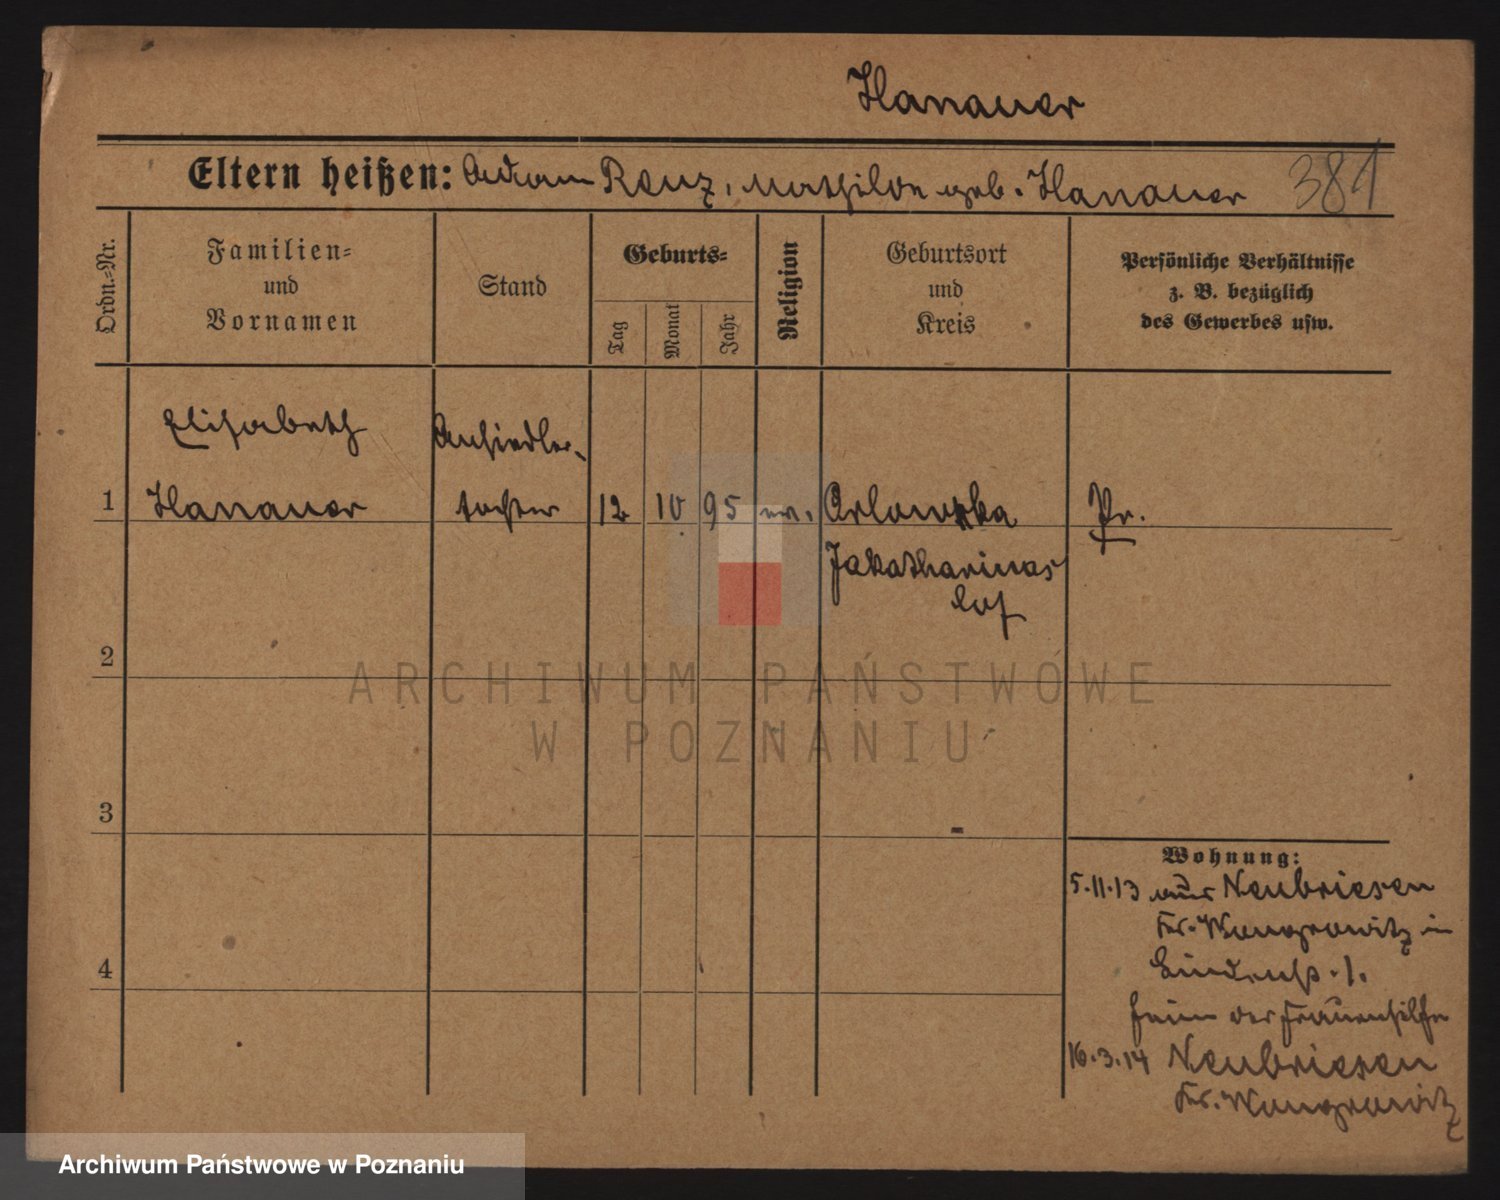 Hanauer
Eltern heißen: Adam Renz, Mathilde geb. Hanauer 381
Ordn.-Nr.
Familien-
und
Vornamen
Stand
Geburts-
Tag
Monat
Jahr
Religion
Geburtsort
und
Kreis
Persönliche Verhältnisse
z. B. bezüglich
des Gewerbes usw.
Elisabeth Ansiedler-
1 Hanauer tochter 12 10 95 ev. Orlowka Pr.
Jekatharinos
law
2
ARCHIWUM PAŃSTWOWE
W POZNANIU
3
Wohnung:
5.11.13 aus Neubriesen
Kr. Wongrowitz in
Lindenstr. 1.
Heim der Frauenhilfe
4
16.3.14 Neubriesen
Kr. Wongrowitz
Archiwum Państwowe w Poznaniu